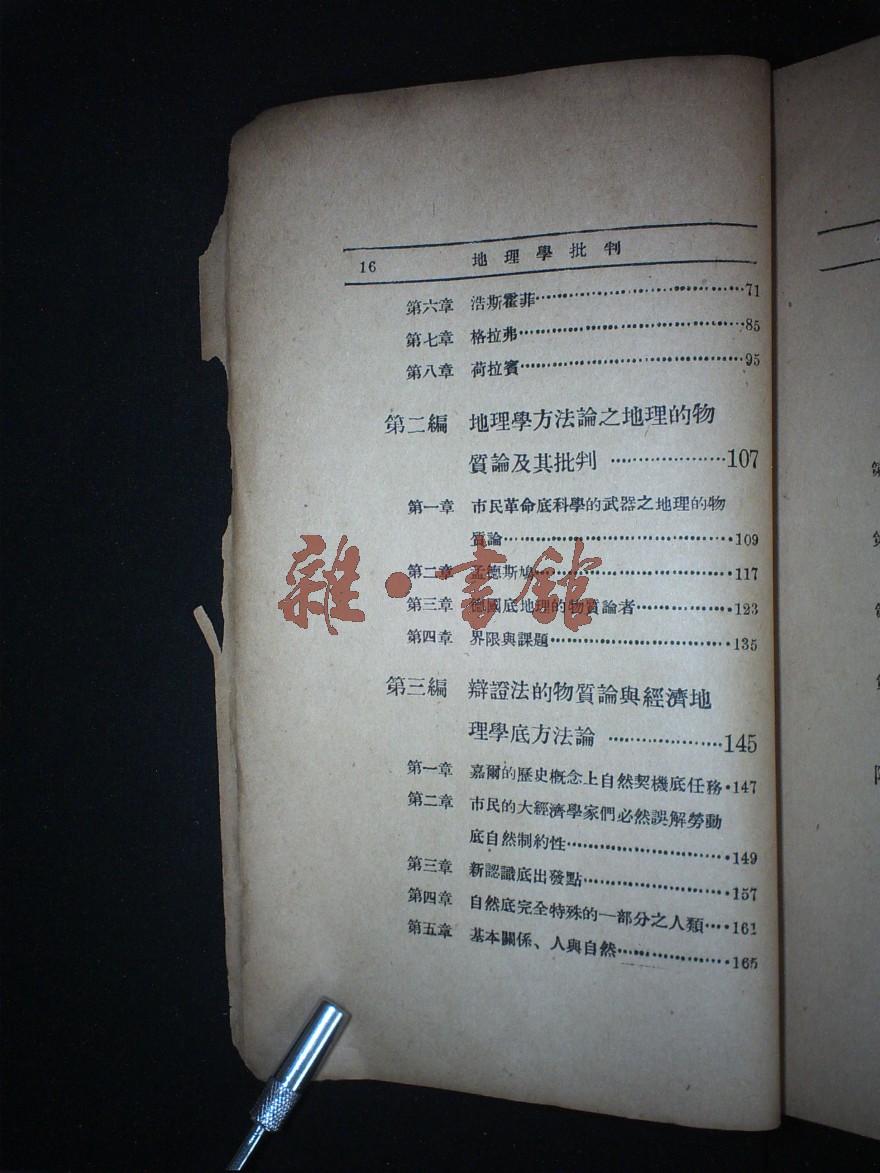 16 地理學批判
第六章 浩斯霍菲……71
第七章 格拉弗……85
第八章 荷拉賓……95
第二編 地理學方法論之地理的物
質論及其批判……107
第一章 市民革命底科學的武器之地理的物
質論……109
第二章 孟德斯鳩……117
第三章 德國底地理的物質論者……123
第四章 界限與課題……135
第三編 辯證法的物質論與經濟地
理學底方法論……145
第一章 嘉爾的歷史概念上自然契機底任務·147
第二章 市民的大經濟學家們必然誤解勞動
底自然制約性……149
第三章 新認識底出發點……157
第四章 自然底完全特殊的一部分之人類…161
第五章 基本關係、人與自然……165
雜·書館